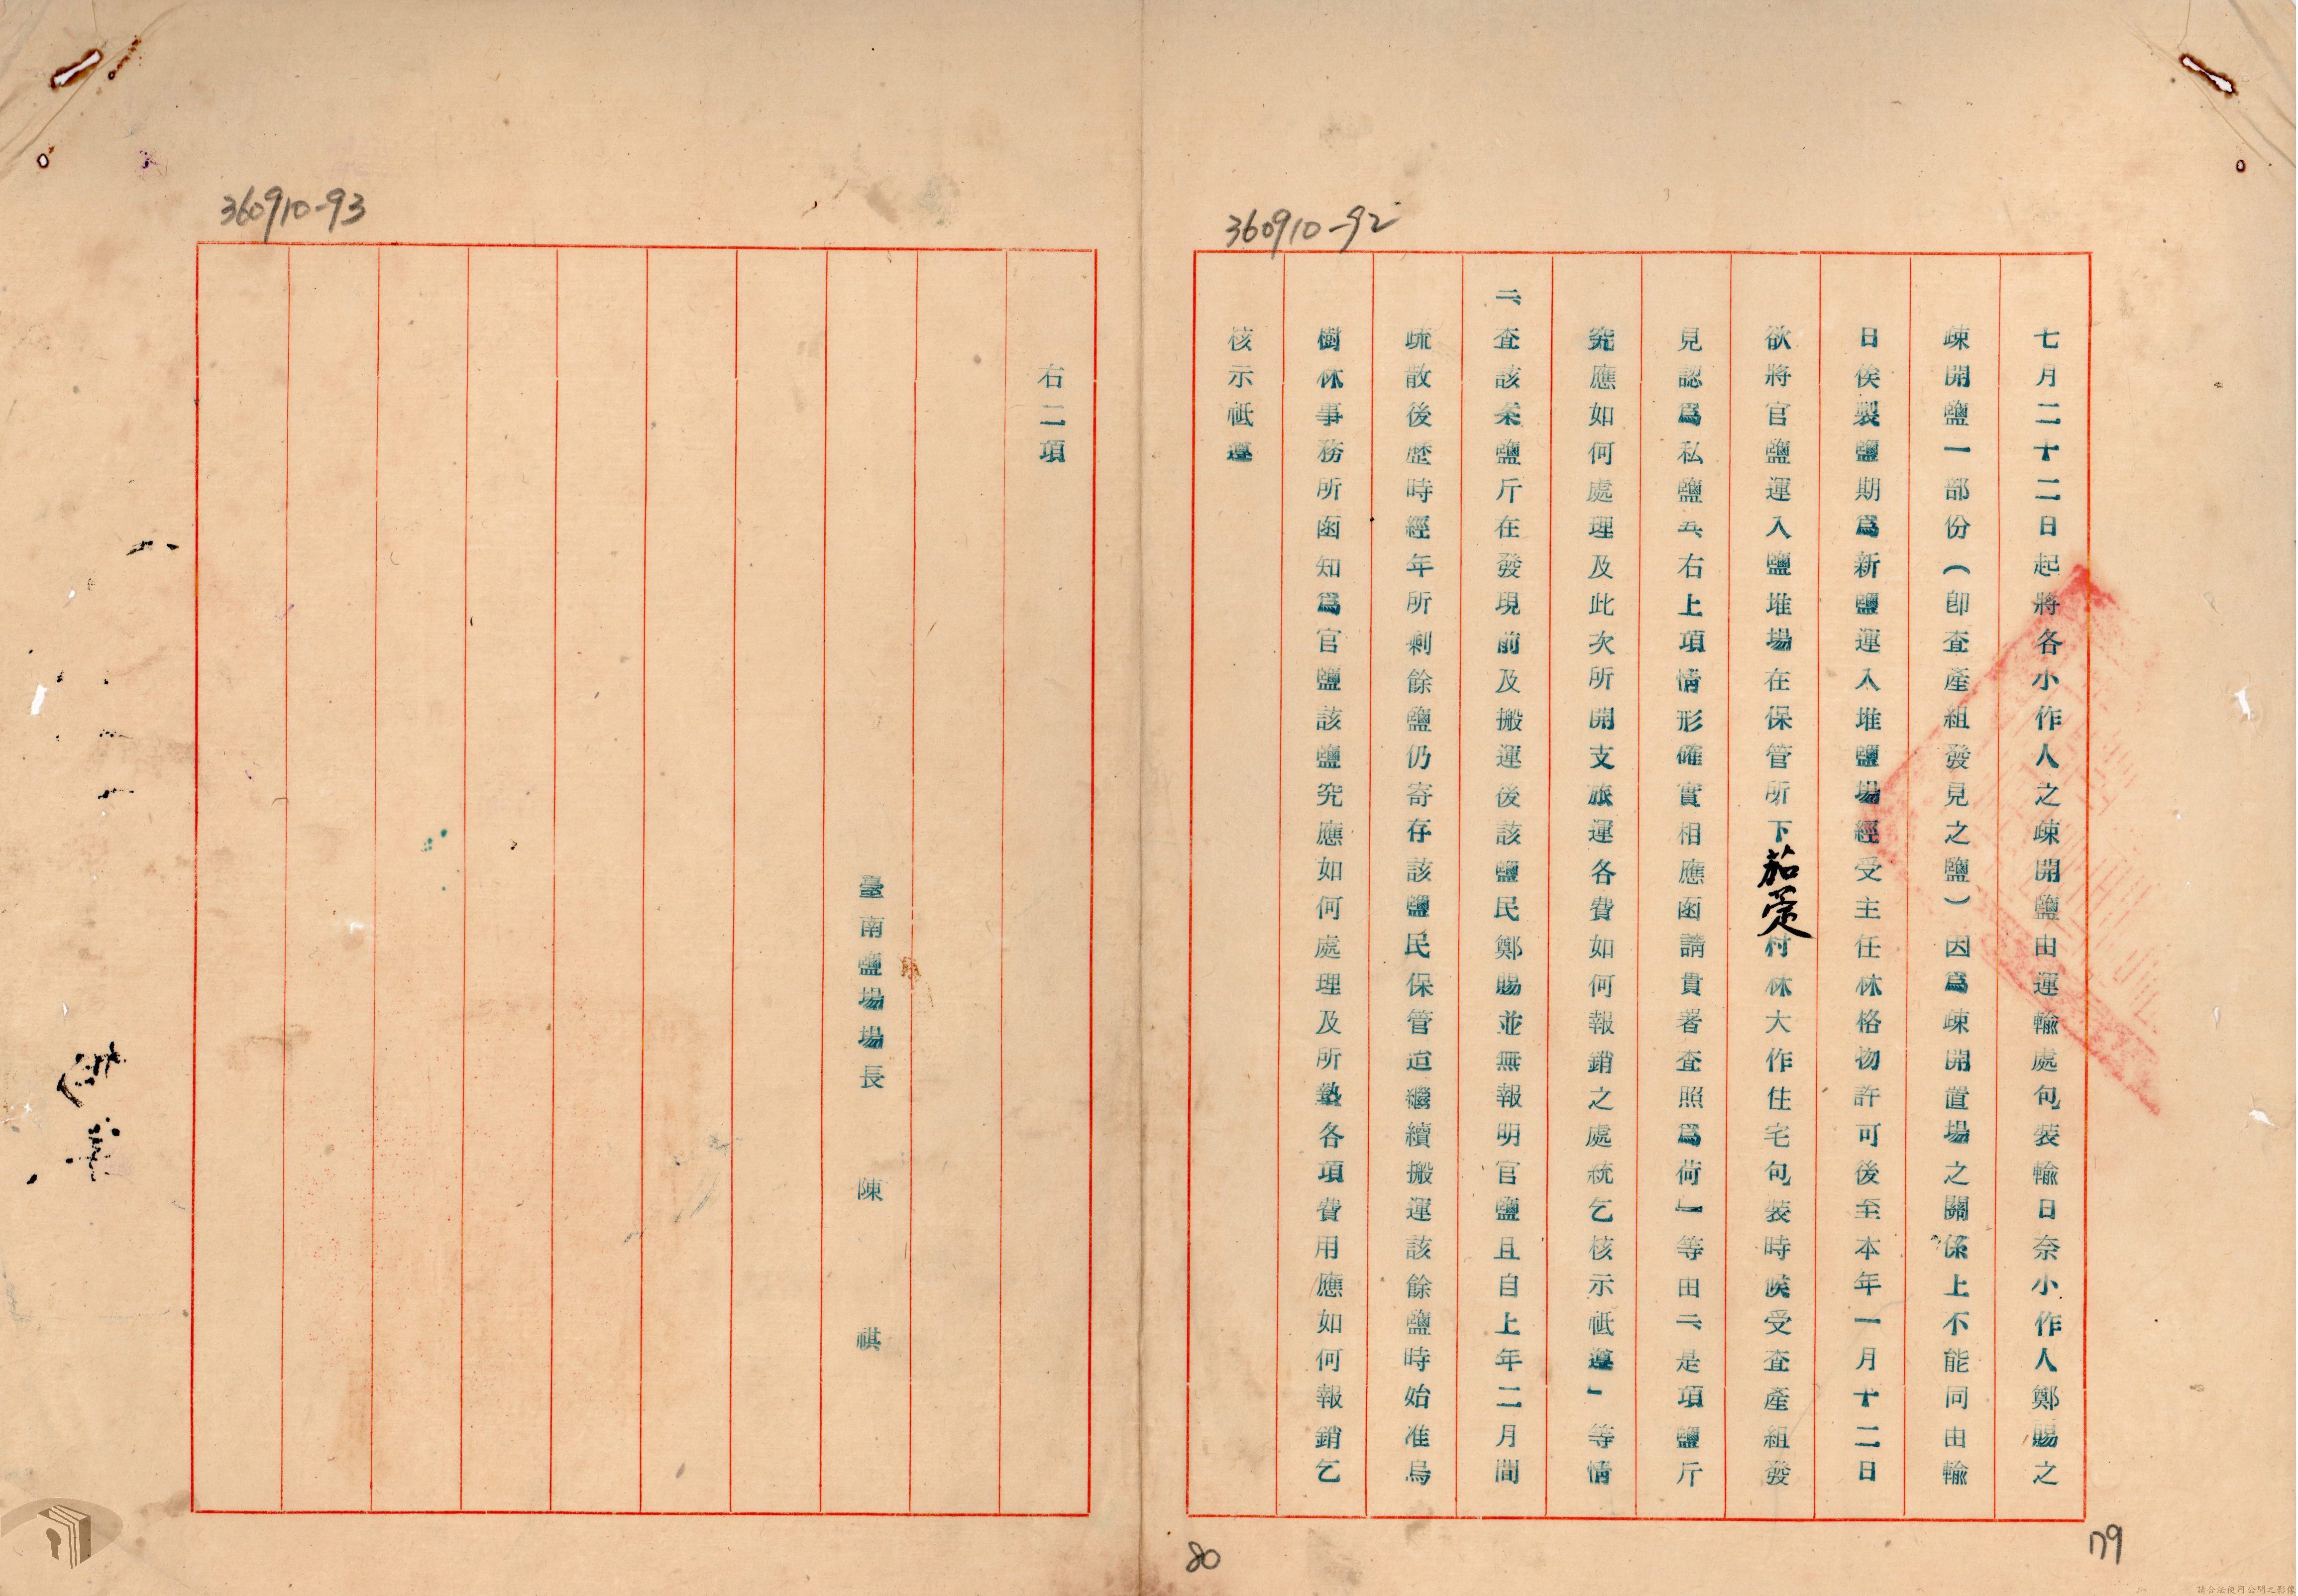 360910-92
七月二十二日起將各小作人之疎開鹽由運輸處包裝輸日奈小作人鄭賜之
疎開鹽一部份（卽查產組發見之鹽）因爲疎開置場之關係上不能同由輸
日俟製鹽期爲新鹽運入堆鹽場經受主任林格物許可後至本年一月十二日
欲將官鹽運入鹽堆場在保管所下茄萣村林大作住宅包裝時候受查產組發
見認爲私鹽五、右上項情形確實相應函請貴署查照爲荷」等由二、是項鹽斤
究應如何處理及此次所開支旅運各費如何報銷之處統乞核示祗遵」等情
二、查該案鹽斤在發現前及搬運後該鹽民鄭賜並無報明官鹽且自上年二月間
疏散後歷時經年所剩餘鹽仍寄存該鹽民保管迨繼續搬運該餘鹽時始准烏
樹林事務所函知爲官鹽該鹽究應如何處理及所墊各項費用應如何報銷乞
核示祗遵
79
360910-93
右二項
臺南鹽場場長　陳　祺
80
請合法使用公開之影像